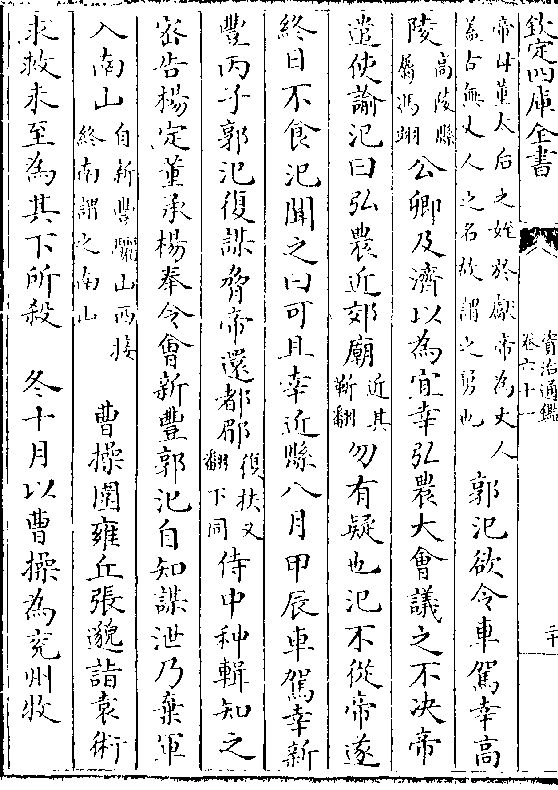 欽定四庫全書
資治通鑑
卷六十一
二十
帝母董太后之姪於獻帝為丈人
蓋古無丈人之名故謂之舅也
郭汜欲令車駕幸高
陵
高陵縣
屬馮翊
公卿及濟以為宜幸弘農大會議之不決帝
遣使諭汜曰弘農近郊廟
近其
靳翻
勿有疑也汜不從帝遂
終日不食汜聞之曰可且幸近縣八月甲辰車駕幸新
豐丙子郭汜復謀脅帝還都郿
復扶又
翻下同
侍中种輯知之
密告楊定董承楊奉令會新豐郭汜自知謀泄乃棄軍
入南山
自新豐驪山西接
終南謂之南山
曹操圍雍丘張邈詣袁術
求救未至為其下所殺
冬十月以曹操為兖州牧